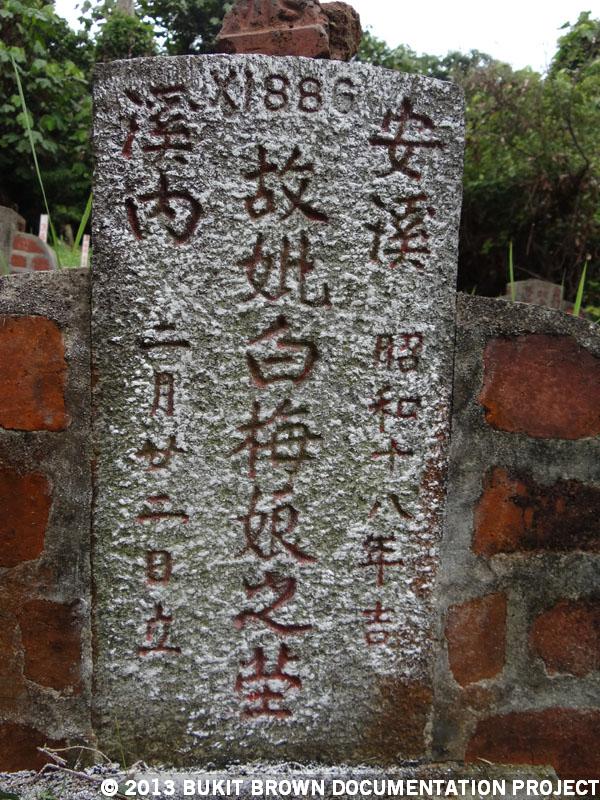 X1886
安溪
昭和十八年吉
故妣白梅娘之塋
溪內
二月廿二日立
© 2013 BUKIT BROWN DOCUMENTATION PROJECT